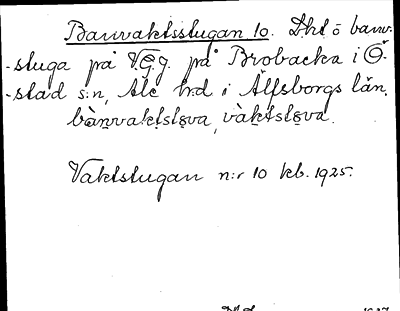 Banvaktsstugan 10. Dht ō banv-
-stuga på V.G.g. på Brobacka i Ö.
-stad s:n, Ale h:d i Älfsborgs län.
bànvaktstɷva, vàktstɷva.
Vaktstugan n:r 10 kb. 1925.